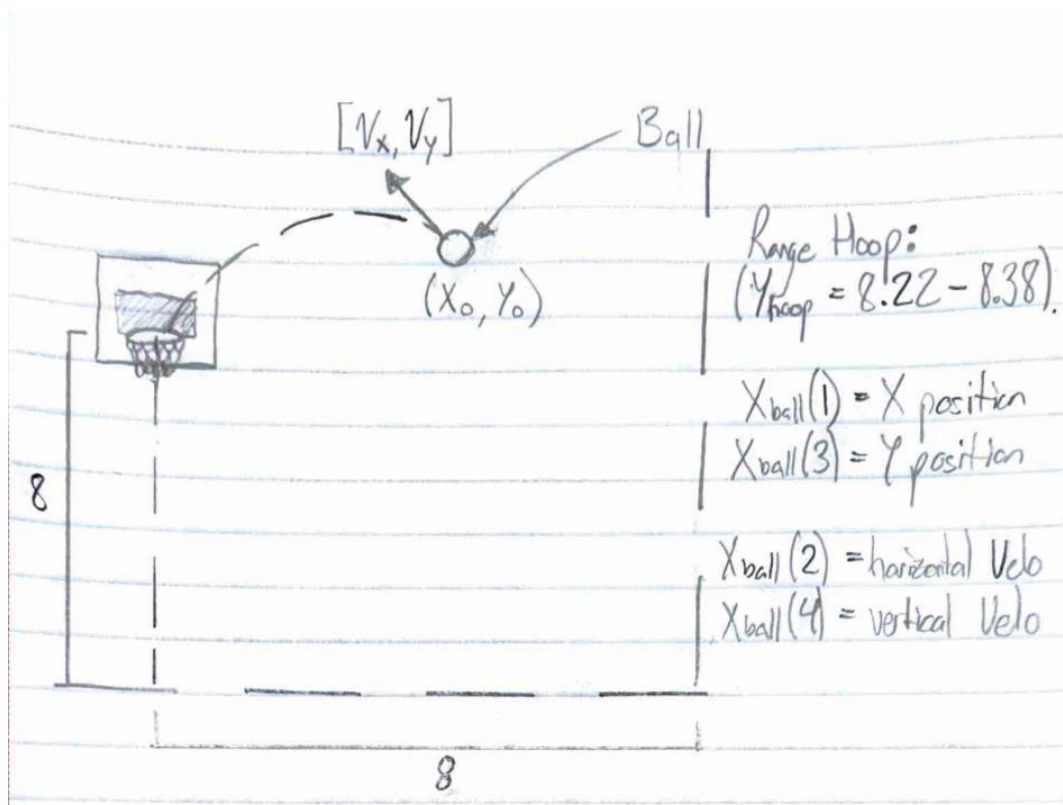 [Vx, Vy]
Ball
(X0, Y0)
Range Hoop:
(Yhoop = 8.22 - 8.38).
Xball(1) = X position
Xball(3) = Y position
Xball(2) = horizontal Velo
Xball(4) = vertical Velo
8
8